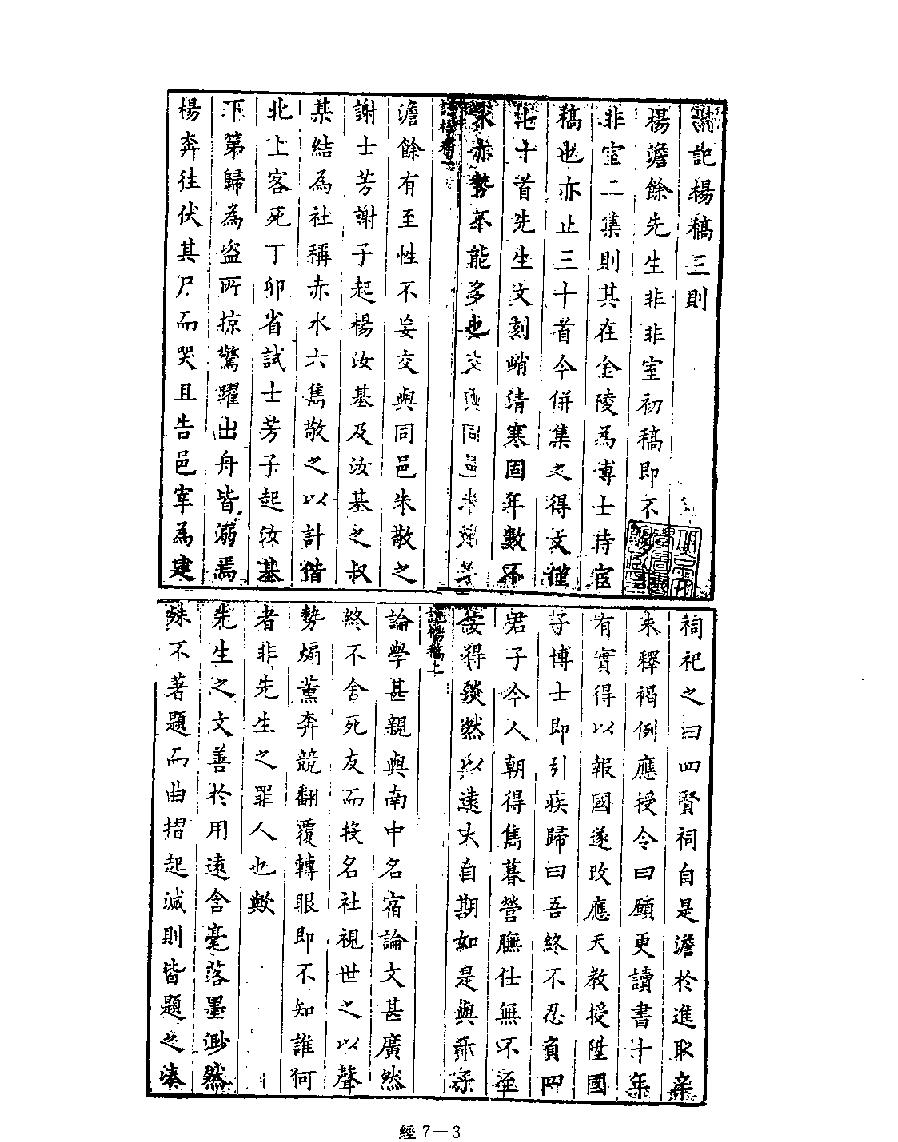 記楊稿三則
楊澹餘先生非非室初稿即不
非室二集則其在金陵為博士待官
稿也亦止三十首今併集之得文僅
七十首先生文刻峭清寒固年數不
永亦勢不能多也交與同邑朱
澹餘有至性不妄交與同邑朱敬之
謝士芳謝子起楊汝基及汝基之叔
某結為社稱赤水六雋敬之以計偕
北上客死丁卯省試士芳子起汝基
下第歸為盜所掠驚躍出舟皆溺焉
楊奔往伏其尸而哭且告邑宰為建
祠祀之曰四賢祠自是澹於進取辛
未釋褐例應授令曰願更讀書十年
有實得以報國遂改應天教授陞國
子博士即引疾歸曰吾終不忍負四
君子今人朝得雋暮營膴仕無不筌
蹄得錄然以遠大自期如是與
記楊稿
論學甚親與南中名宿論文甚廣然
終不舍死友而投名社視世之以聲
勢煽薰奔競翻覆轉眼即不知誰何
者非先生之罪人也歟
先生之文善於用遠含毫落墨渺然
殊不著題而曲摺起滅則皆題之湊
經7—3